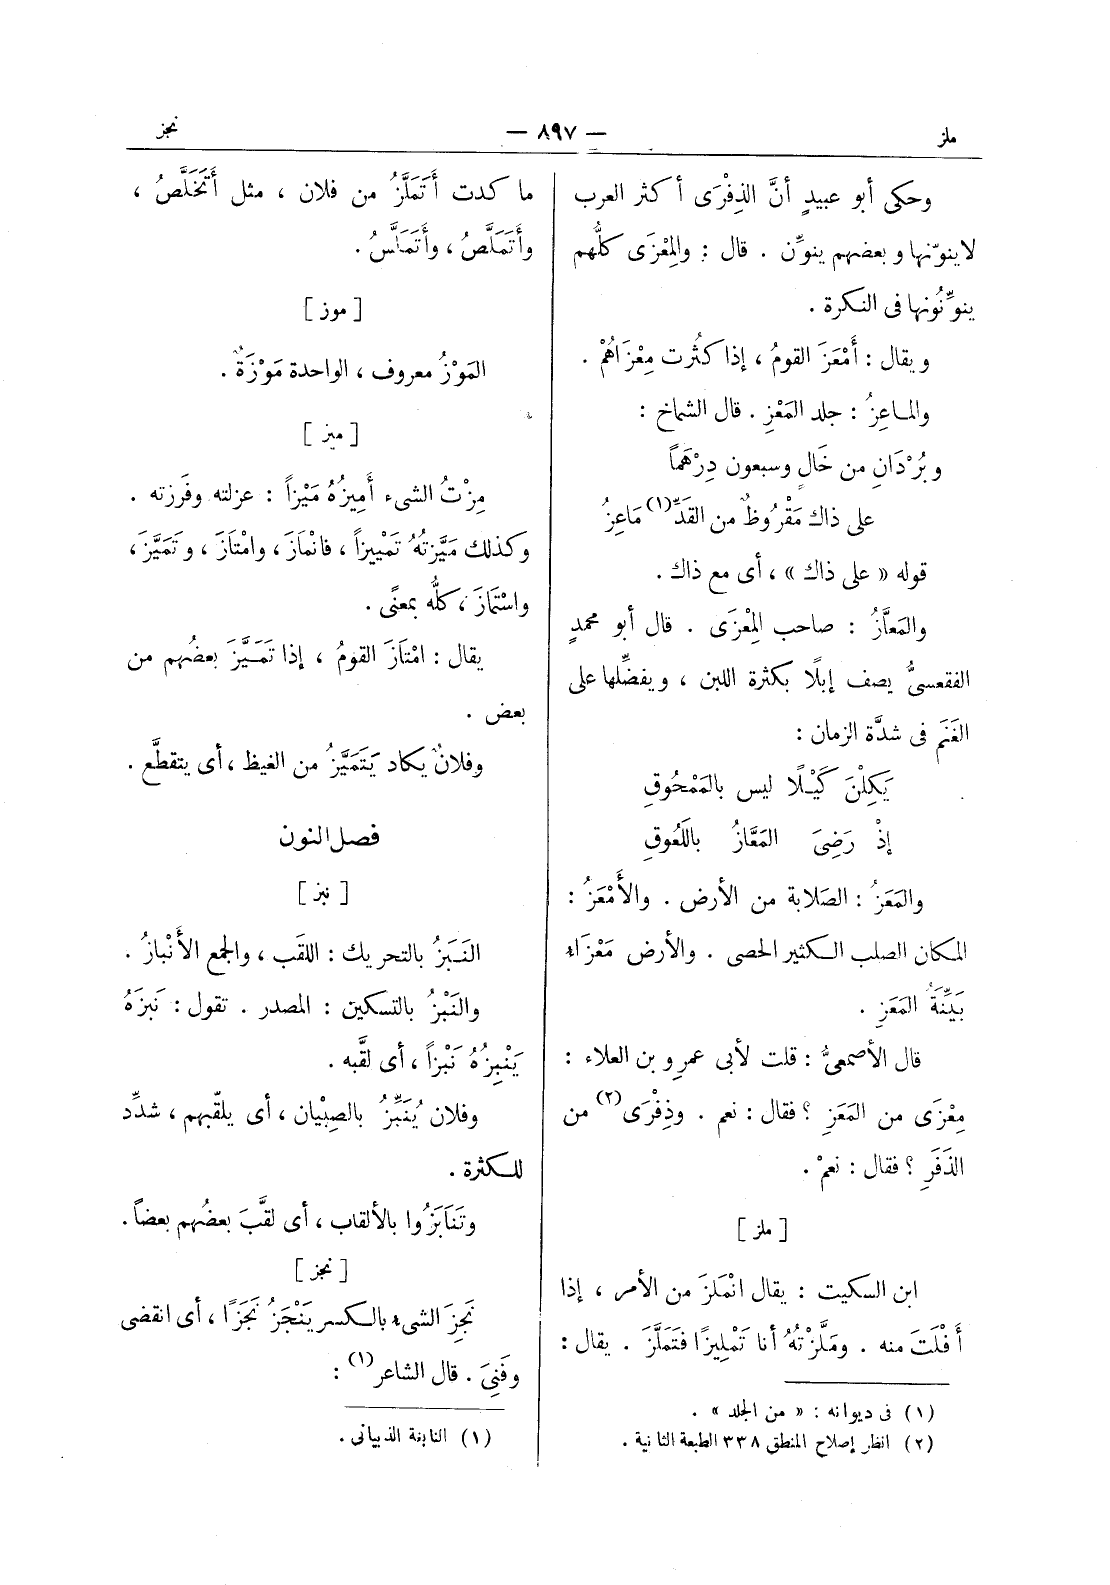 ملز
— ٨٩٧ —
نجز
وحكى أبو عبيدٍ أنَّ الذِفْرَى أكثر العرب
لاينوّنها وبعضهم ينوِّن . قال : والمِعْزَى كلُّهم
ينوِّنُونها فى النكرة .
ويقال : أَمْعَزَ القومُ ، إذا كثُرت مِعْزَاهُمْ .
والمـاعِزُ : جلد المَعْزِ . قال الشماخ :
وبُرْدَانِ من خَالٍ وسبعون دِرْهَماً
على ذاك مَقْرُوظٌ من القَدِّ (١) مَاعِزُ
قوله « على ذاك » ، أى مع ذاك .
والمَعَّازُ : صاحب المِعْزَى . قال أبو محمدٍ
الفقعسىُّ يصف إبلًا بكثرة اللبن ، ويفضِّلها على
الغَنَم فى شدَّة الزمان :
يَكِلْنَ كَيْـلًا ليس بالمَمْحُوقِ
إذْ رَضِىَ المَعَّازُ باللَعُوقِ
والمَعَزُ : الصَلابة من الأرض . والأَمْعَزُ :
المكان الصلب الـكثير الحصى . والأرض مَعْزَاء
بَيِّنَةُ المَعَزِ .
قال الأصمعىُّ : قلت لأبى عمرِو بن العلاء :
مِعْزَى من المَعَزِ ؟ فقال : نعم . وذِفْرَى (٢) من
الذَفَرِ ؟ فقال : نعمْ .
[ ملز ]
ابن السكيت : يقال انْمَلَزَ من الأمر ، إذا
أَفْلَتَ منه . ومَلَّزْتُهُ أنا تَمْلِيزًا فتَمَلَّزَ . يقال :
(١) فى ديوانه : « من الجلد » .
(٢) انظر إصلاح المنطق ٣٣٨ الطبعة الثانية .
ما كدت أَتَمَلَّزُ من فلان ، مثل أَتَخَلَّصُ ،
وأَتَمَلَّصُ ، وأَتَمَلَّسُ .
[ موز ]
المَوْزُ معروف ، الواحدة مَوْزَةٌ .
[ ميز ]
مِزْتُ الشىء أَمِيزُهُ مَيْزاً : عزلته وفَرزته .
وكذلك مَيَّزتُهُ تَمْيِيزاً ، فانْمَازَ ، وامْتَازَ ، وتَمَيَّزَ ،
واسْتَمَازَ ، كلُّه بمعنًى .
يقال : امْتَازَ القومُ ، إذا تَمَـيَّزَ بعضُهم من
بعض .
وفلانٌ يكاد يَتَمَيَّزُ من الغيظ ، أى يتقطَّع .
فصل النون
[ نبز ]
النَـبَزُ بالتحريك : اللقَب ، والجمع الأَنْبازُ .
والنَبْزُ بالتسكين : المصدر . تقول : نَبَزَهُ
يَنْبِزُهُ نَبْزاً ، أى لقَّبه .
وفلان يُنَبِّزُ بالصِبْيان ، أى يلقّبهم ، شدِّد
للـكثرة .
وتَنَابَزُوا بالألقاب ، أى لقَّبَ بعضُهم بعضاً .
[ نجز ]
نَجِزَ الشىء بالـكسر يَنْجَزُ نَجَزًا ، أى انقضى
وفَنِىَ . قال الشاعر (١) :
(١) النابغة الذبيانى .